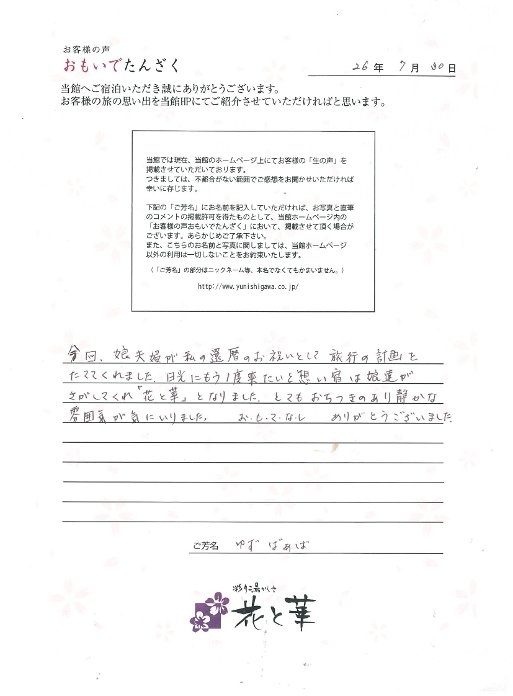 お客様の声
おもいでたんざく
26年 7月 30日
当館へご宿泊いただき誠にありがとうございます。
お客様の旅の思い出を当館HPにてご紹介させていただければと思います。
当館では現在、当館のホームページ上にてお客様の「生の声」を
掲載させていただいております。
つきましては、不都合がない範囲でご感想をお聞かせいただければ
幸いに存じます。
下記の「ご芳名」にお名前を記入していただければ、お写真と直筆
のコメントの掲載許可を得たものとして、当館ホームページ内の
「お客様の声おもいでたんざく」において、掲載させて頂く場合が
ございます。あらかじめご了承下さい。
また、こちらのお名前と写真に関しましては、当館ホームページ
以外の利用は一切しないことをお約束いたします。
（「ご芳名」の部分はニックネーム等、本名でなくてもかまいません。）
http://www.yunishigawa.co.jp/
今回、娘夫婦が私の還暦のお祝いとして 旅行の計画を
たててくれました。日光にもう1度来たいと想い宿は娘達が
さがしてくれ「花と華」となりました。とてもおちつきのあり静かな
雰囲気が気にいりました。 お・も・て・な・し ありがとうございました。
ご芳名 ゆず ばぁば
花と華